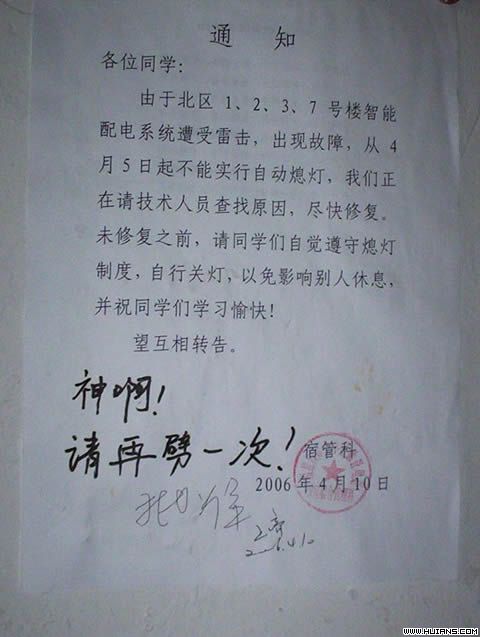 通 知
各位同学:
由于北区 1、2、3、7 号楼智能
配电系统遭受雷击，出现故障，从 4
月 5 日起不能实行自动熄灯，我们正
在请技术人员查找原因，尽快修复。
未修复之前，请同学们自觉遵守熄灯
制度，自行关灯，以免影响别人休息，
并祝同学们学习愉快！
望互相转告。
神啊！
请再劈一次！
宿管科
2006 年 4 月 10 日
WWW.HUIANS.COM